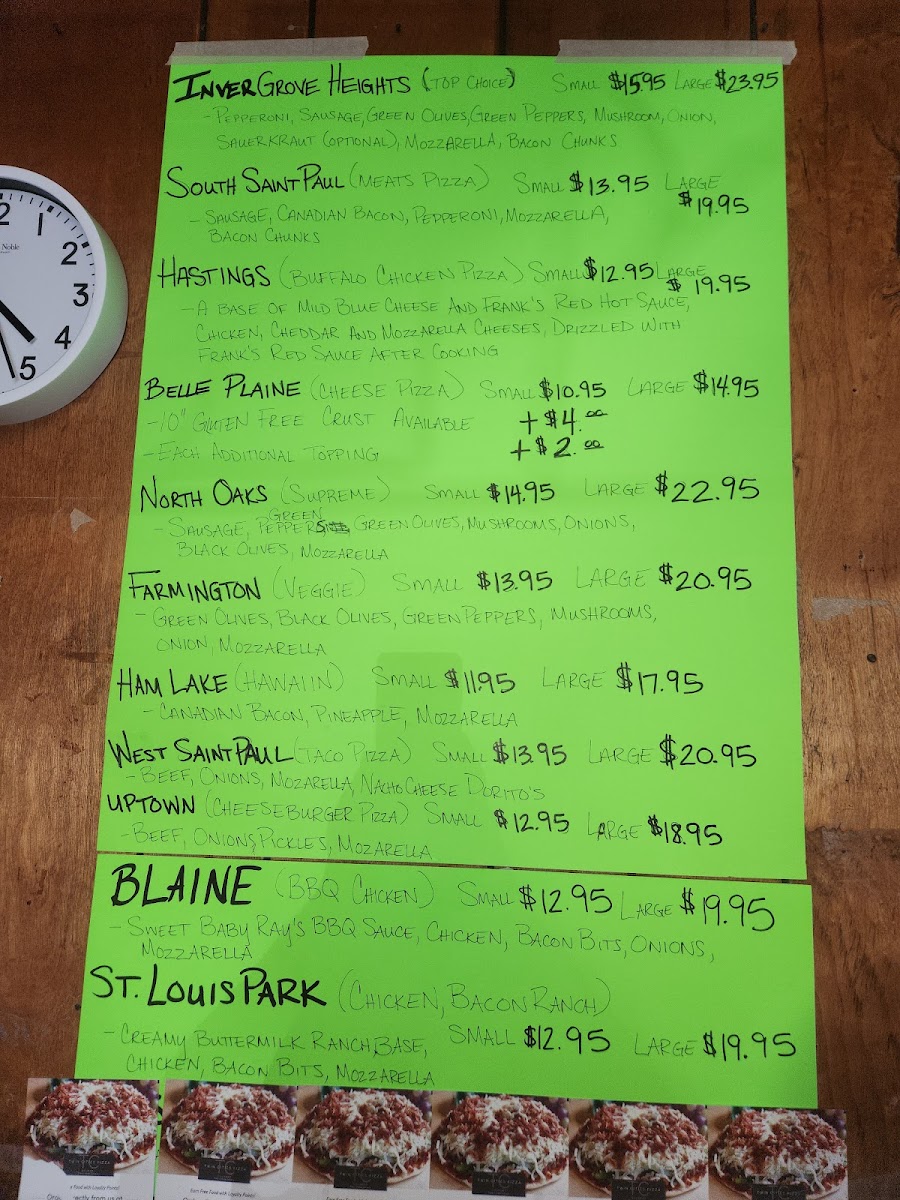 INVER GROVE HEIGHTS (TOP CHOICE) SMALL $15.95 LARGE $23.95
- PEPPERONI, SAUSAGE, GREEN OLIVES, GREEN PEPPERS, MUSHROOM, ONION,
SAUERKRAUT (OPTIONAL), MOZZARELLA, BACON CHUNKS
SOUTH SAINT PAUL (MEATS PIZZA) SMALL $13.95 LARGE
$19.95
- SAUSAGE, CANADIAN BACON, PEPPERONI, MOZZARELLA,
BACON CHUNKS
HASTINGS (BUFFALO CHICKEN PIZZA) SMALL $12.95 LARGE
$19.95
- A BASE OF MILD BLUE CHEESE AND FRANK'S RED HOT SAUCE,
CHICKEN, CHEDDAR AND MOZZARELLA CHEESES, DRIZZLED WITH
FRANK'S RED SAUCE AFTER COOKING
BELLE PLAINE (CHEESE PIZZA) SMALL $10.95 LARGE $14.95
- 10" GLUTEN FREE CRUST AVAILABLE +$4.00
- EACH ADDITIONAL TOPPING +$2.00
NORTH OAKS (SUPREME) SMALL $14.95 LARGE $22.95
GREEN
- SAUSAGE, PEPPERS, GREEN OLIVES, MUSHROOMS, ONIONS,
BLACK OLIVES, MOZZARELLA
FARMINGTON (VEGGIE) SMALL $13.95 LARGE $20.95
- GREEN OLIVES, BLACK OLIVES, GREEN PEPPERS, MUSHROOMS,
ONION, MOZZARELLA
HAM LAKE (HAWAIIN) SMALL $11.95 LARGE $17.95
- CANADIAN BACON, PINEAPPLE, MOZZARELLA
WEST SAINT PAUL (TACO PIZZA) SMALL $13.95 LARGE $20.95
- BEEF, ONIONS, MOZARELLA, NACHO CHEESE DORITO'S
UPTOWN (CHEESEBURGER PIZZA) SMALL $12.95 LARGE $18.95
- BEEF, ONIONS, PICKLES, MOZARELLA
BLAINE (BBQ CHICKEN) SMALL $12.95 LARGE $19.95
- SWEET BABY RAY'S BBQ SAUCE, CHICKEN, BACON BITS, ONIONS,
MOZZARELLA
ST. LOUIS PARK (CHICKEN, BACON RANCH)
SMALL $12.95 LARGE $19.95
- CREAMY BUTTERMILK RANCH BASE,
CHICKEN, BACON BITS, MOZZARELLA
1
2
3
4
5